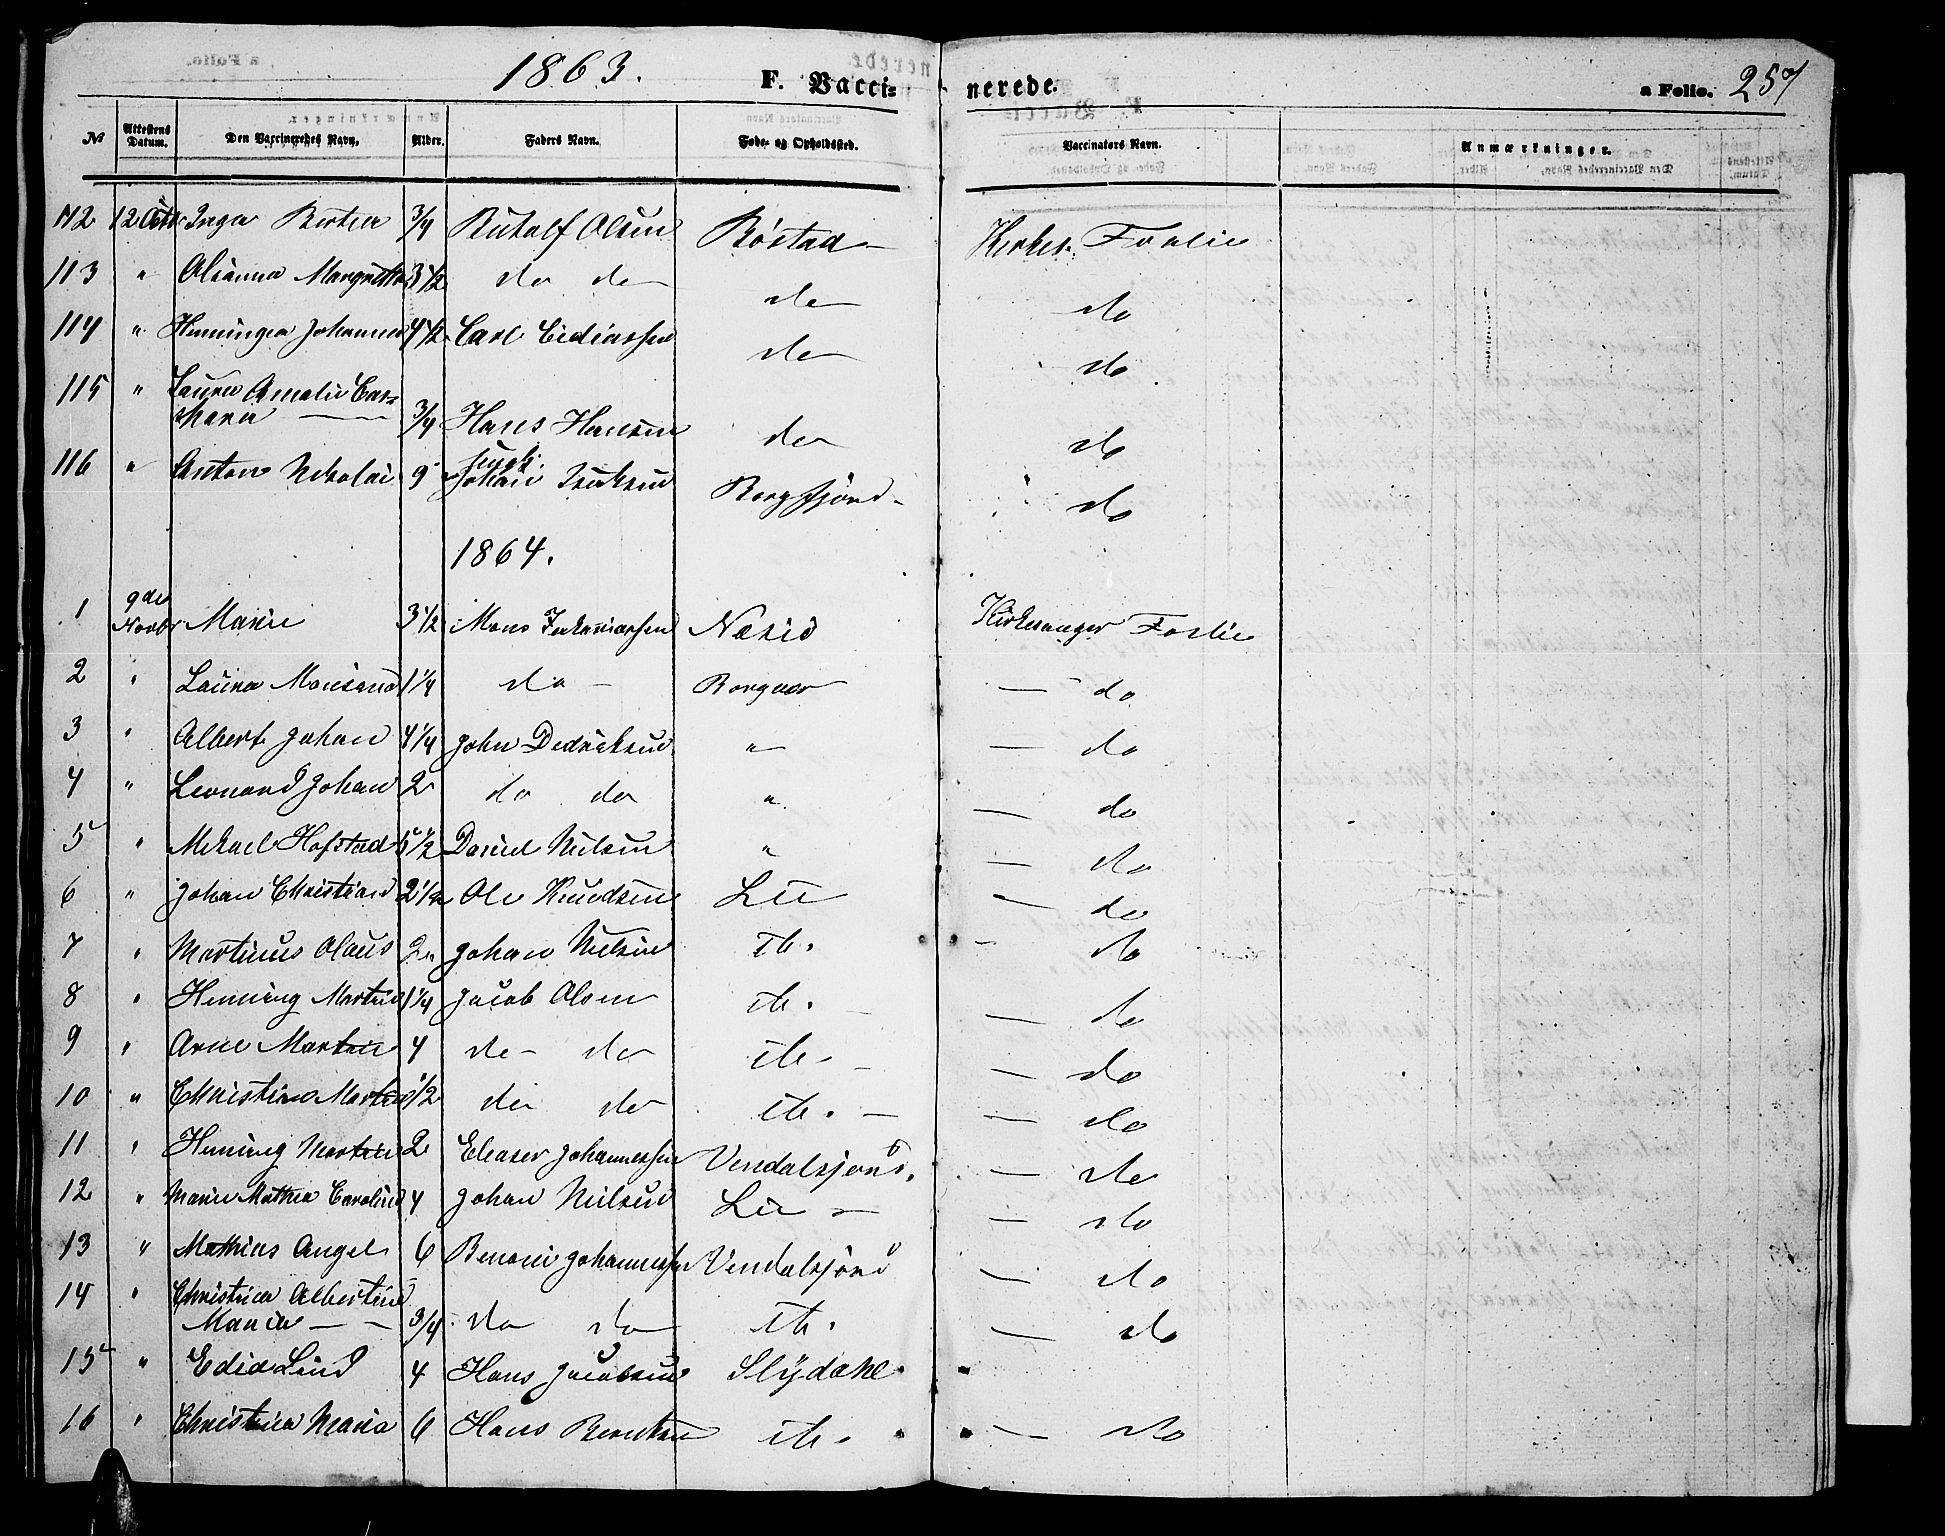 1863.
F. Vacci= nerede.
a Folio. 257
№ Attestens Datum. Den Vaccineredes Navn. Alder. Faders Navn. Føde- og Opholdssted. Vaccinators Navn. Anmærkninger.
112 12 Octbr Inga Bertea 3/4 Rudolf Olsen Bøstad — Kirkes. Foslie
113 " Alianna Margrethe 3 1/2 do do do do
114 " Henningea Johanna 4 1/2 Carl Eidiassen do do
115 " Laura Amalie Cat=
hana — 3/4 Hans Hansen do do
116 " Anton Nikolai 9 Johan Isaksen Borgfjord - do
1864.
1 9de Novbr Marie 3 1/2 Mons Zakariassen Næsië Kirkesanger Foslie
2 " Laura Monsana 1 1/4 do — Borgvær — do
3 " Albert Johan 4 1/4 John Dedriksen " — do
4 " Leonard Johan 2 do do " — do
5 " Mekael Hofstad 5 1/2 Daniel Nielsen " — do
6 " Johan Christian 2 1/2 Ole Knudsen Lie — do
7 " Martinus Olaus 2 Johan Nielsen ib. - do
8 " Henning Martin 1 1/4 Jacob Olsen ib. — do
9 " Arne Martin 4 do - do ib. — do
10 " Christine Martine 1/2 do do ib. — — do
11 " Hening Martin 2 Eleaser Johannessen Vendalsjord. — do
12 " Marie Mathea Caroline 4 Johan Nielsen Lie — — do
13 " Mathias Angel 6 Benoni Johannessen Vendalsjord — do
14 " Christina Albertine
Maria — — 3/4 do do ib. — do
15 " Edia Lind 4 Hans Jacobsen Slÿdahl
16 " Christina Maria 6 Hans Berntsen ib. — do